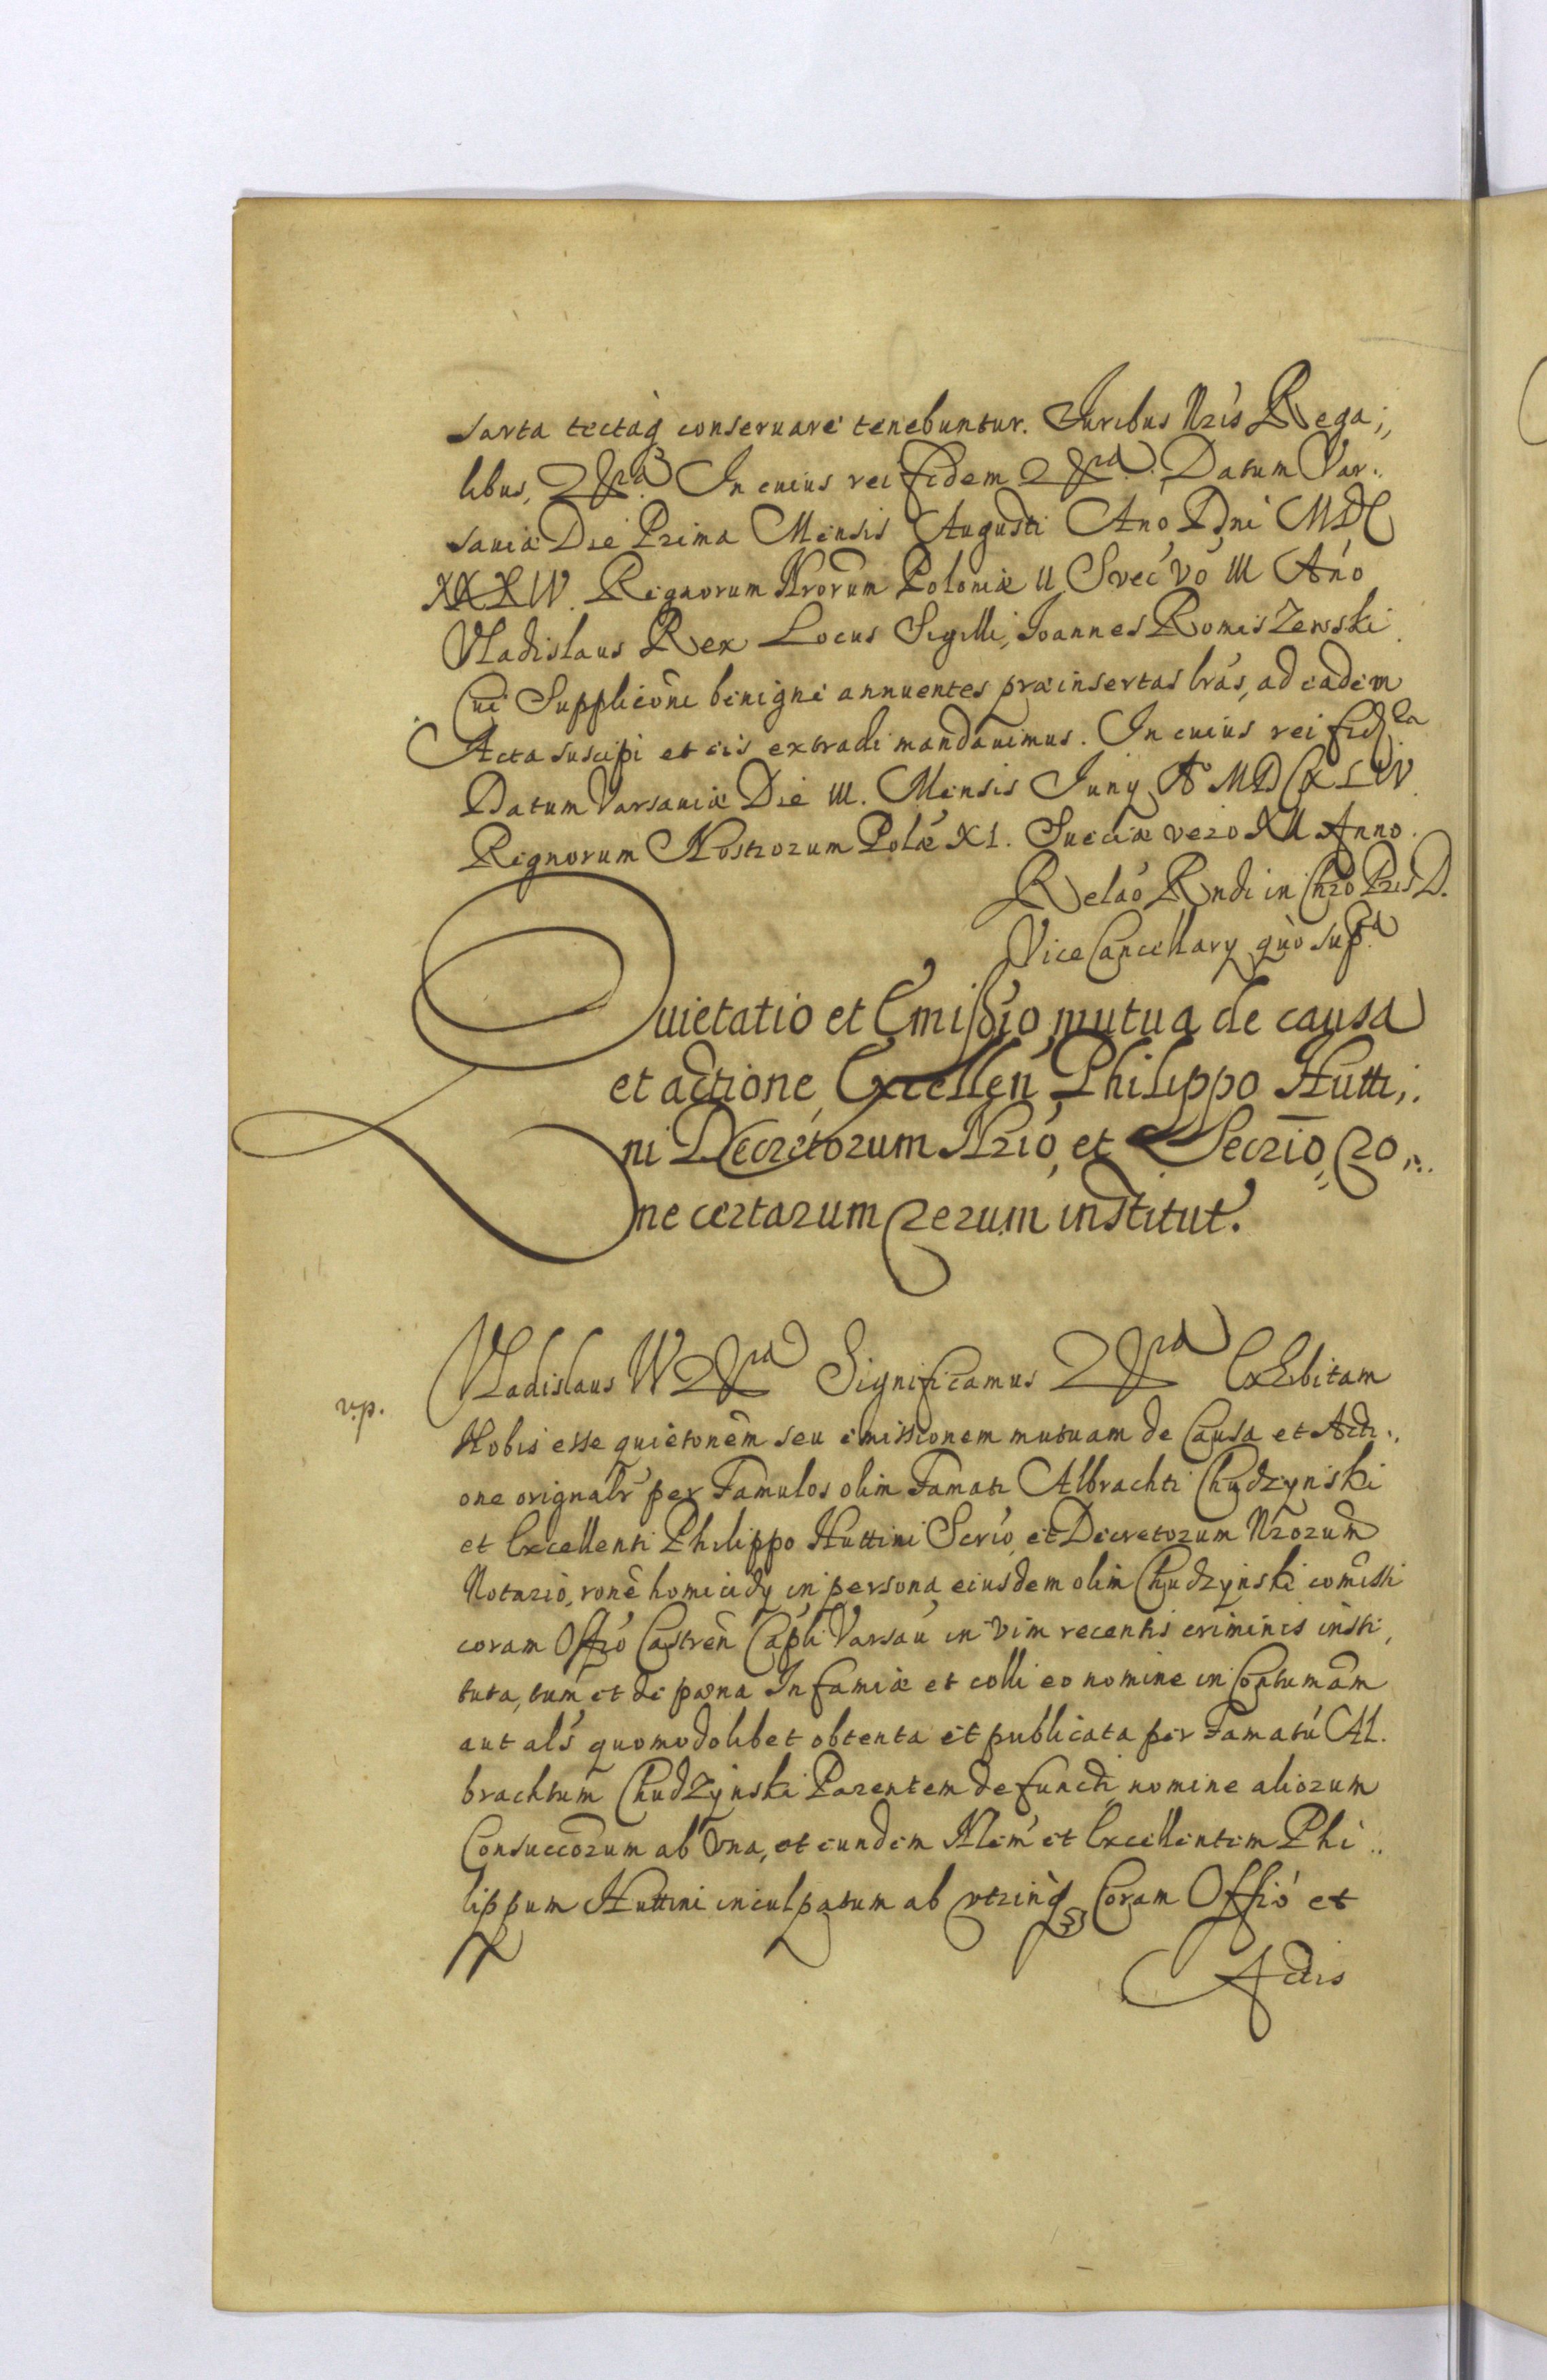 sarta tectaq́ conseruare tenebuntur. Iuribus Nris Rega,,
libus, In cuius rei fidem Datum Var.
sauiæ Die Prima Mensis Augusti Ano Dni MDC
XXXIV. Regnorum Nrorum Poloniæ II Svec vo III Ano
Vladislaus Rex Locus Sigilli, Joannes Romiszewski
Cui Supplicõni benigne annuentes præinsertas lras, ad eadem
Acta suscipi et eis extradi mandauimus. In cuius rei fid
Datum Varsauiæ Die III. Mensis Juny Ao MDCXLIV.
Regnorum Nostrorum Polæ XI. Sueciæ vero XII Anno.
Relao Rndi in Chro Pris D.
Vice Cancellary quo supra
Quietatio et Emissio mutua de causa
et actione, Excellen Philippo Hutti,,
ni Decretorum Nrio, et Secrio, ro,,
ne certarum rerum institut.
v.p.
Vladislaus IV Significamus Exhibitam
Nobis esse quietonẽm seu emissionem mutuam de Causa et Acti.,
one orignalr per Famulos olim Famati Albrachti Chudzynski
et Excellenti Philippo Huttini Scrio, et Decretorum Nrorum
Notario, ronẽ homicidy in persona eiusdem olim Chudzynski comissi
coram Offio Castren Capli Varsau in vim recentis criminis insti,
tuta, tum et de pæna Infamiæ et colli eo nomine in Contumam
aut als quomodolibet obtenta et publicata per Famatú Al.
brachtum Chudzynski Parentem defuncti nomine aliorum
Consuccorum ab Vna, et eundem Nlem et Excellentem Phi..
lippum Huttini inculpatum ab vtrinq́ Coram Offió et
Actis